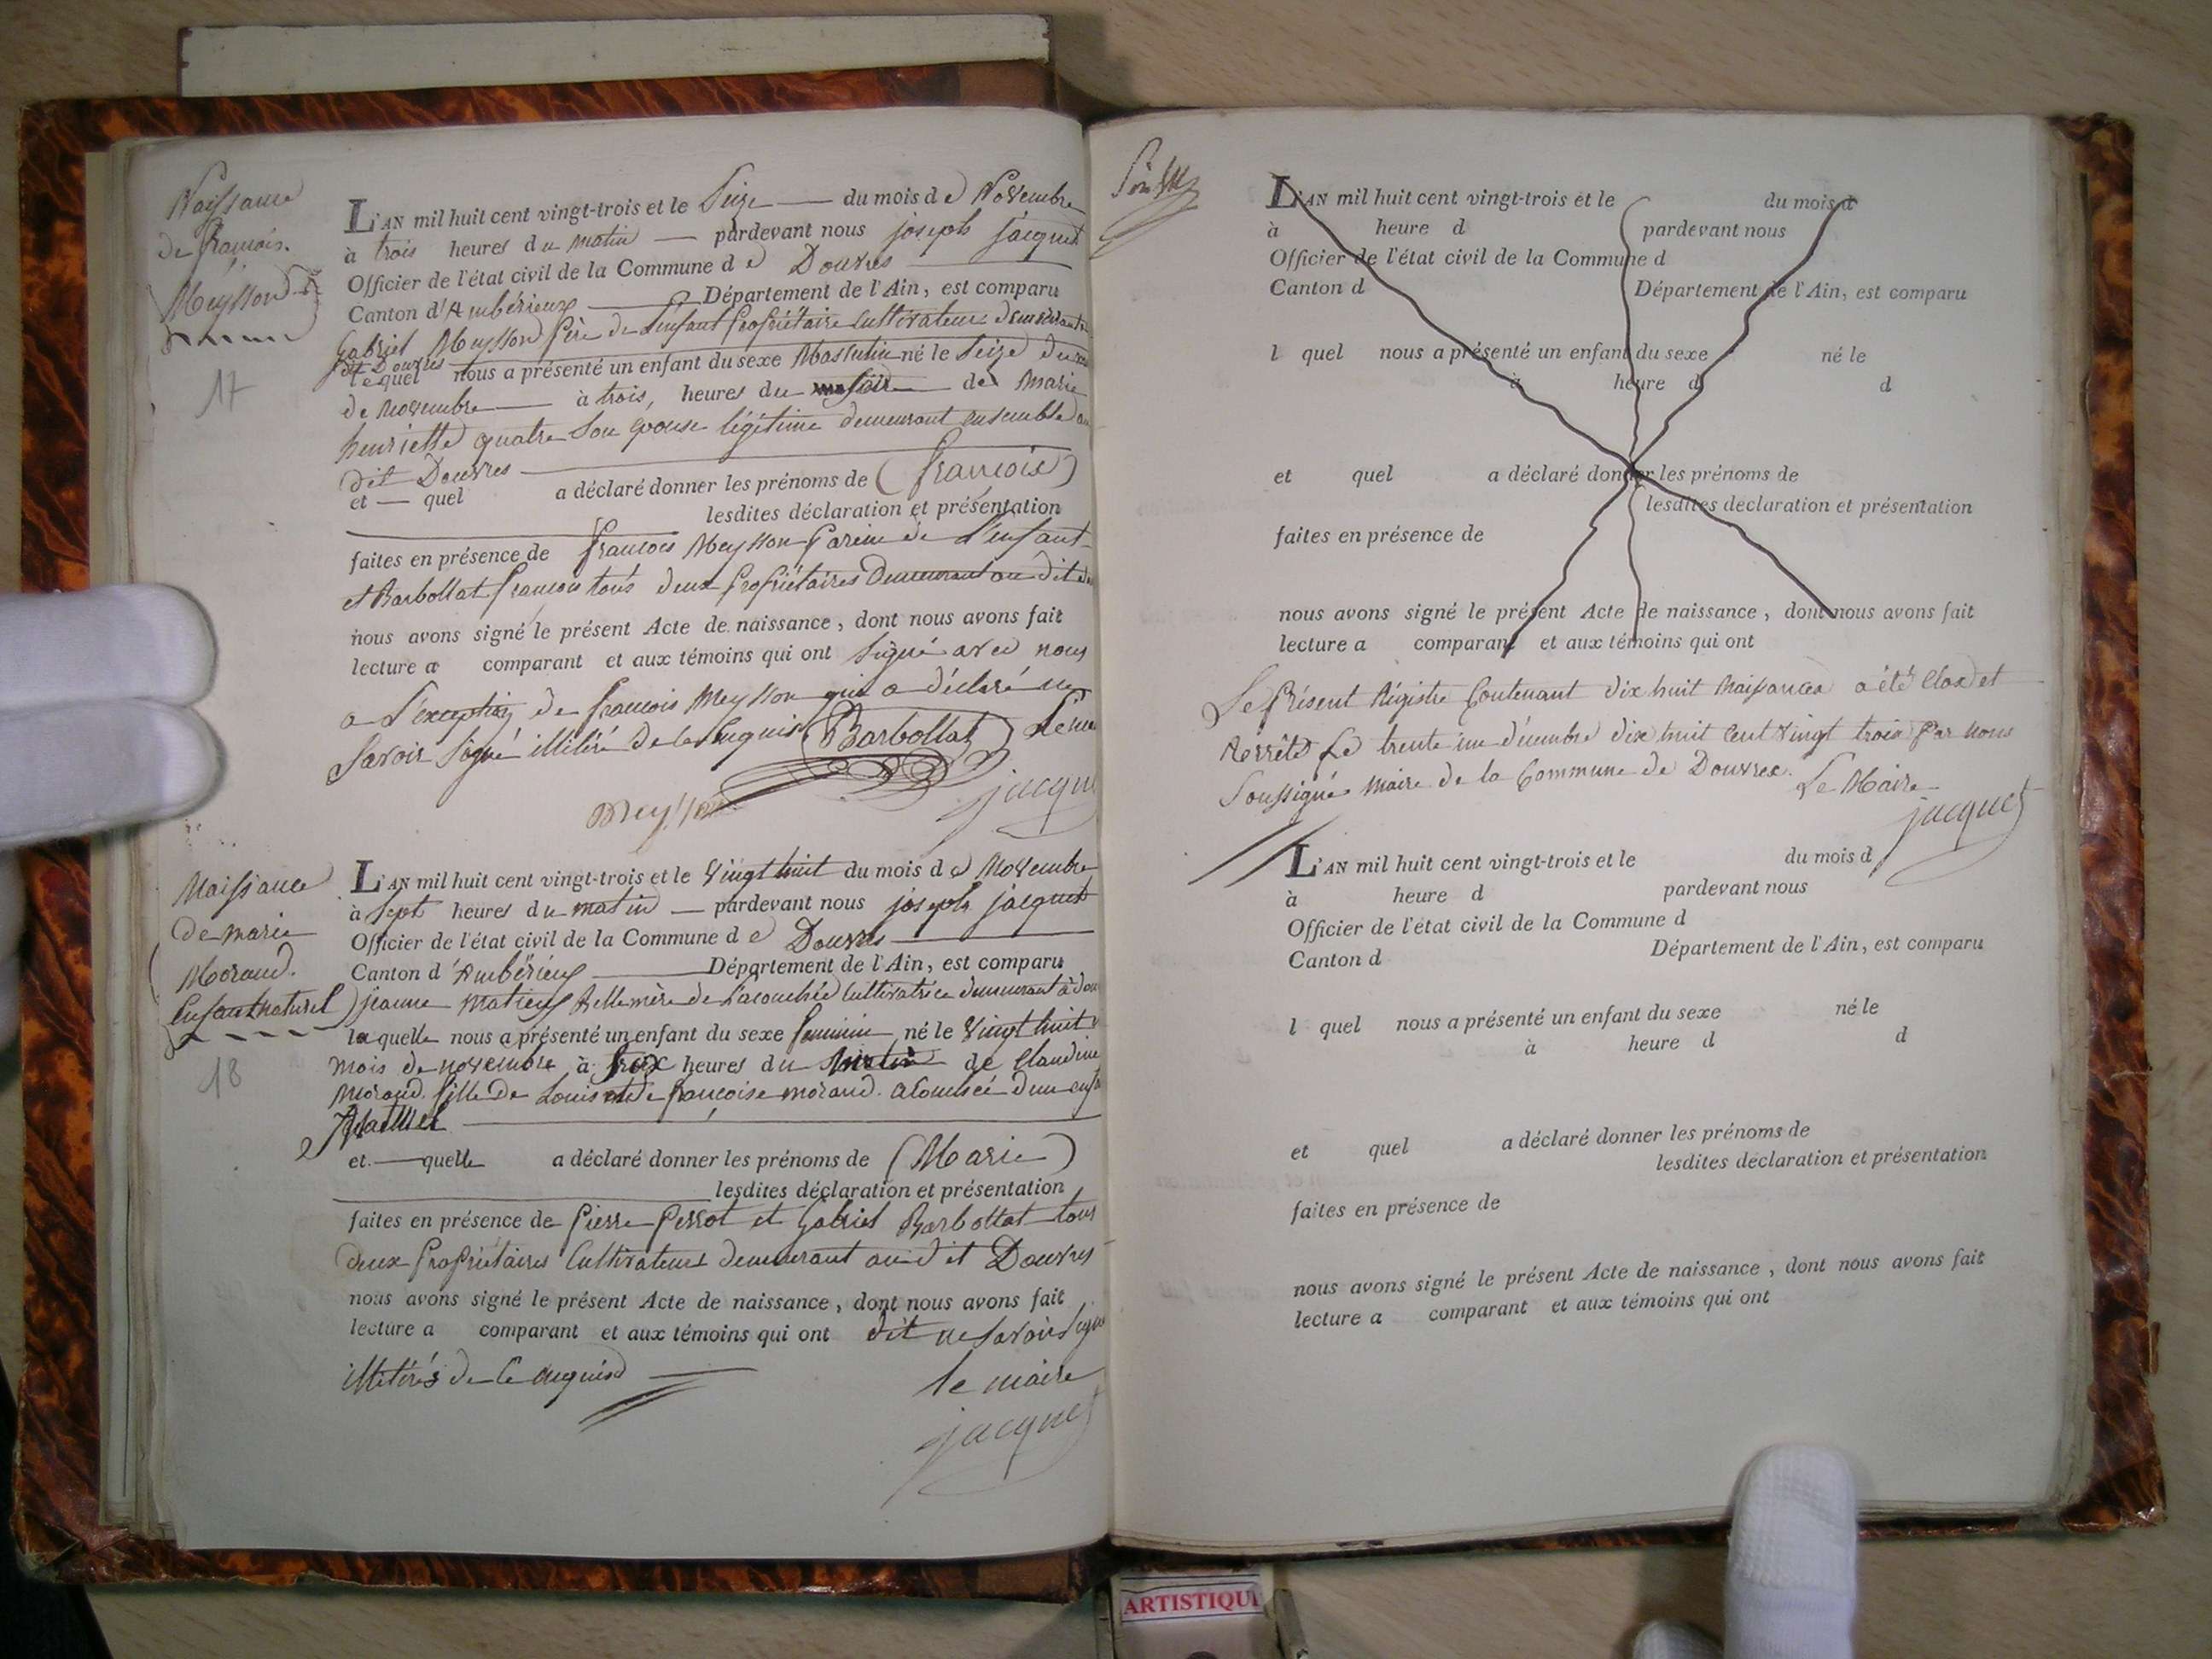 Naissance
de françois
Meysson
17
L'AN mil huit cent vingt-trois et le Seize du mois de Novembre
à trois heures du matin pardevant nous joseph jacquet
Officier de l'état civil de la Commune de Douvres
Canton d'Ambérieux Département de l'Ain, est comparu
Gabriel Meysson père de L'enfant propriétaire Cultivateur demeurant au
dit Douvres
lequel nous a présenté un enfant du sexe Masculin né le Seize du
de Novembre à trois, heures du soir de Marie
henriette quatre Son epouse légitime demeurant ensemble au
dit Douvres
et quel a déclaré donner les prénoms de (françois)
lesdites déclaration et présentation
faites en présence de françois Meysson Parein de L'enfant
et Barbollat françois tous deux propriétaires Demeurant au dit
nous avons signé le présent Acte de naissance, dont nous avons fait
lecture a comparant et aux témoins qui ont Signé avec nous
a L'exception de françois Meysson qui a déclaré ne
Savoir Signé illitéré De ce enquis Barbollat Le
Meysson jacque
Naissance
de marie
Morand.
Enfant naturel
18
L'AN mil huit cent vingt-trois et le vingt huit du mois de Novembre
à Sept heures du matin pardevant nous joseph jacquet
Officier de l'état civil de la Commune de Douvres
Canton d'Ambérieux Département de l'Ain, est comparu
jeanne Matieux Bellemère de L'acouchée Cultivatrice demeurant à Dou
laquelle nous a présenté un enfant du sexe feminin né le Vingt huit
mois de novembre à heures du matin de Claudine
Morand fille De Louis et de françoise morand. acouchée d'un enf
Naturel
et quelle a déclaré donner les prénoms de (Marie)
lesdites déclaration et présentation
faites en présence de Pierre Perrot et Gabriel Barbollat tous
deux propriétaires Cultivateurs demeurant au dit Douvres
nous avons signé le présent Acte de naissance, dont nous avons fait
lecture a comparant et aux témoins qui ont dit ne Savoir Signé
illitérés De Ce enquis
le maire
jacquet
L'AN mil huit cent vingt-trois et le du mois d
à heure d pardevant nous
Officier de l'état civil de la Commune d
Canton d Département de l'Ain, est comparu
l quel nous a présenté un enfant du sexe né le
à heure d d
et quel a déclaré donner les prénoms de
lesdites declaration et présentation
faites en présence de
nous avons signé le présent Acte de naissance, dont nous avons fait
lecture a comparant et aux témoins qui ont
Le Présent Régistre Contenant dix huit Naissances a été Clos et
Arrêté Le trente un décembre dix huit Cent vingt trois Par nous
Soussigné maire de la Commune de Douvres. Le Maire
jacquet
L'AN mil huit cent vingt-trois et le du mois d
à heure d pardevant nous
Officier de l'état civil de la Commune d
Canton d Département de l'Ain, est comparu
l quel nous a présenté un enfant du sexe né le
à heure d d
et quel a déclaré donner les prénoms de
lesdites declaration et présentation
faites en présence de
nous avons signé le présent Acte de naissance, dont nous avons fait
lecture a comparant et aux témoins qui ont
ARTISTIQU